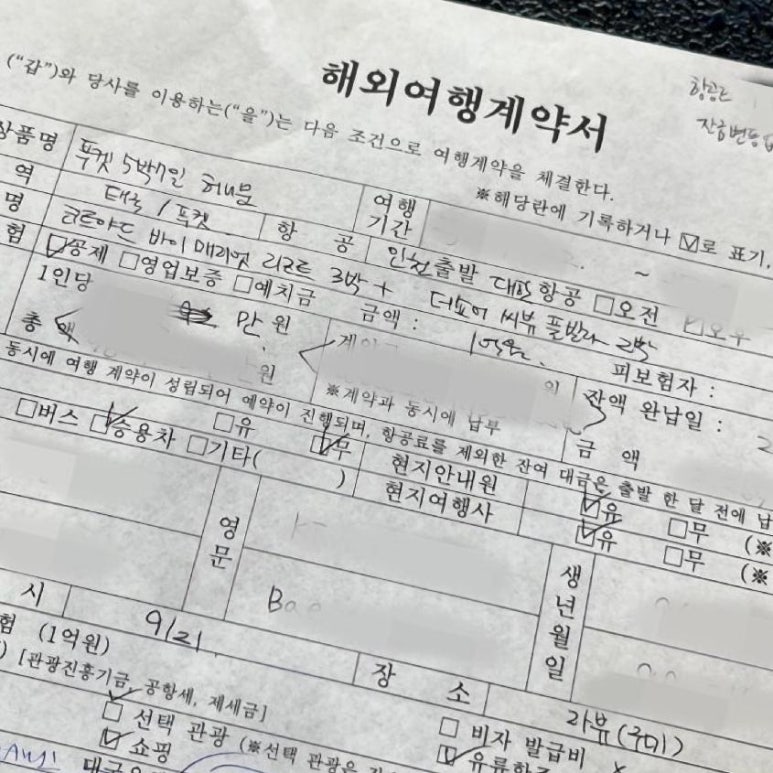 해외여행계약서
("갑")와 당사를 이용하는("을")는 다음 조건으로 여행계약을 체결한다.
※해당란에 기록하거나 ☑로 표기,
상품명 푸켓 5박7일 허니문 여행 기간 ~
역 태국 / 푸켓 항 공 인천출발 대한항공 □오전 ☑오후
명 코트야드 바이 메리엇 리조트 3박 + 더쇼어 씨뷰 풀빌라 2박
험 ☑공제 □영업보증 □예치금 금액 : 1억원 피보험자 :
1인당 만원
총 액 원
※계약과 동시에 납부
잔액 완납일 :
금 액
동시에 여행 계약이 성립되어 예약이 진행되며, 항공료를 제외한 잔여 대금은 출발 한 달 전에 납
□버스 ☑승용차 □기타( )
□유 ☑무
현지안내원 ☑유 □무 (※
현지여행사 ☑유 □무 (※
영문
생년월일
시 9/21 장 소 라뷰(구미)
험 (1억원)
[관광진흥기금, 공항세, 제세금]
☑ 선택 관광 (※선택 관광은
☑ 쇼핑
□ 비자 발급비
☑ 유류할